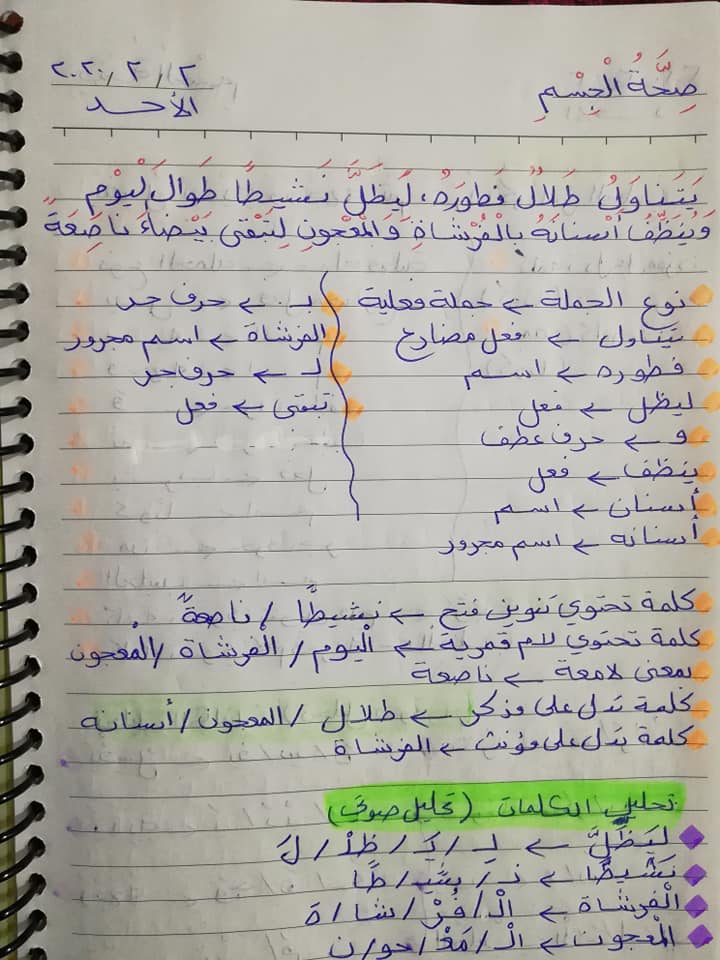 صِحَّةُ الْجِسْمِ
٢ / ٢ / ٢٠٢٠
الأحـد
يَتَناوَلُ طَلالٌ فَطورَهُ، لِيَظَلَّ نَشيطًا طَوالَ لْيَوْمِ
وَيُنَظِّفُ أَسْنانَهُ بِالْفُرْشاةِ وَالْمَعْجونِ لِتَبْقى بَيْضاءَ ناصِعَةً
نوع الجملة ← جملة فعلية
يتناول ← فعل مضارع
فطوره ← اسم
ليظل ← فعل
و ← حرف عطف
ينظف ← فعل
أسنان ← اسم
أسنانه ← اسم مجرور
بـ ← حرف جر
الفرشاة ← اسم مجرور
لـ ← حرف جر
تبقى ← فعل
كلمة تحتوي تنوين فتح ← نشيطًا / ناصعةً .
كلمة تحتوي لام قمرية ← الْيوم / الفرشاة / المعجون
بمعنى لامعة ← ناصعة
كلمة تدل على مذكر ← طلال / المعجون / أسنانه
كلمة تدل على مؤنث ← الفرشاة
تحليل الكلمات (تحليل صوتي)
لِيَظَلَّ ← لِـ / يَـ / ظَلْ / لَ
نَشيطًا ← نـَ / شيـ / طًا
الْفرشاة ← الْـ / فُرْ / شا / ة
الْمعجون ← الْـ / مَعْـ / جو / ن